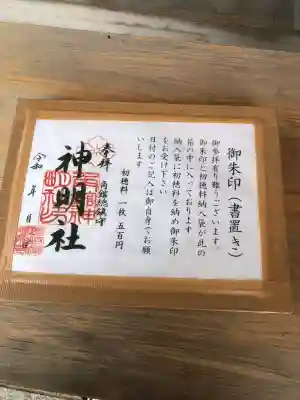 御朱印(書置き)
御参拝有り難うございます。
御朱印と初穂料納入袋が此の
箱の中に入っております
納入袋に初穂料を納め御朱印
をお受け下さい
日付のご記入は御自身でお願
いします
初穂料 一枚 五百円
角館總鎮守
奉拝
神明社
令和 年 月 日